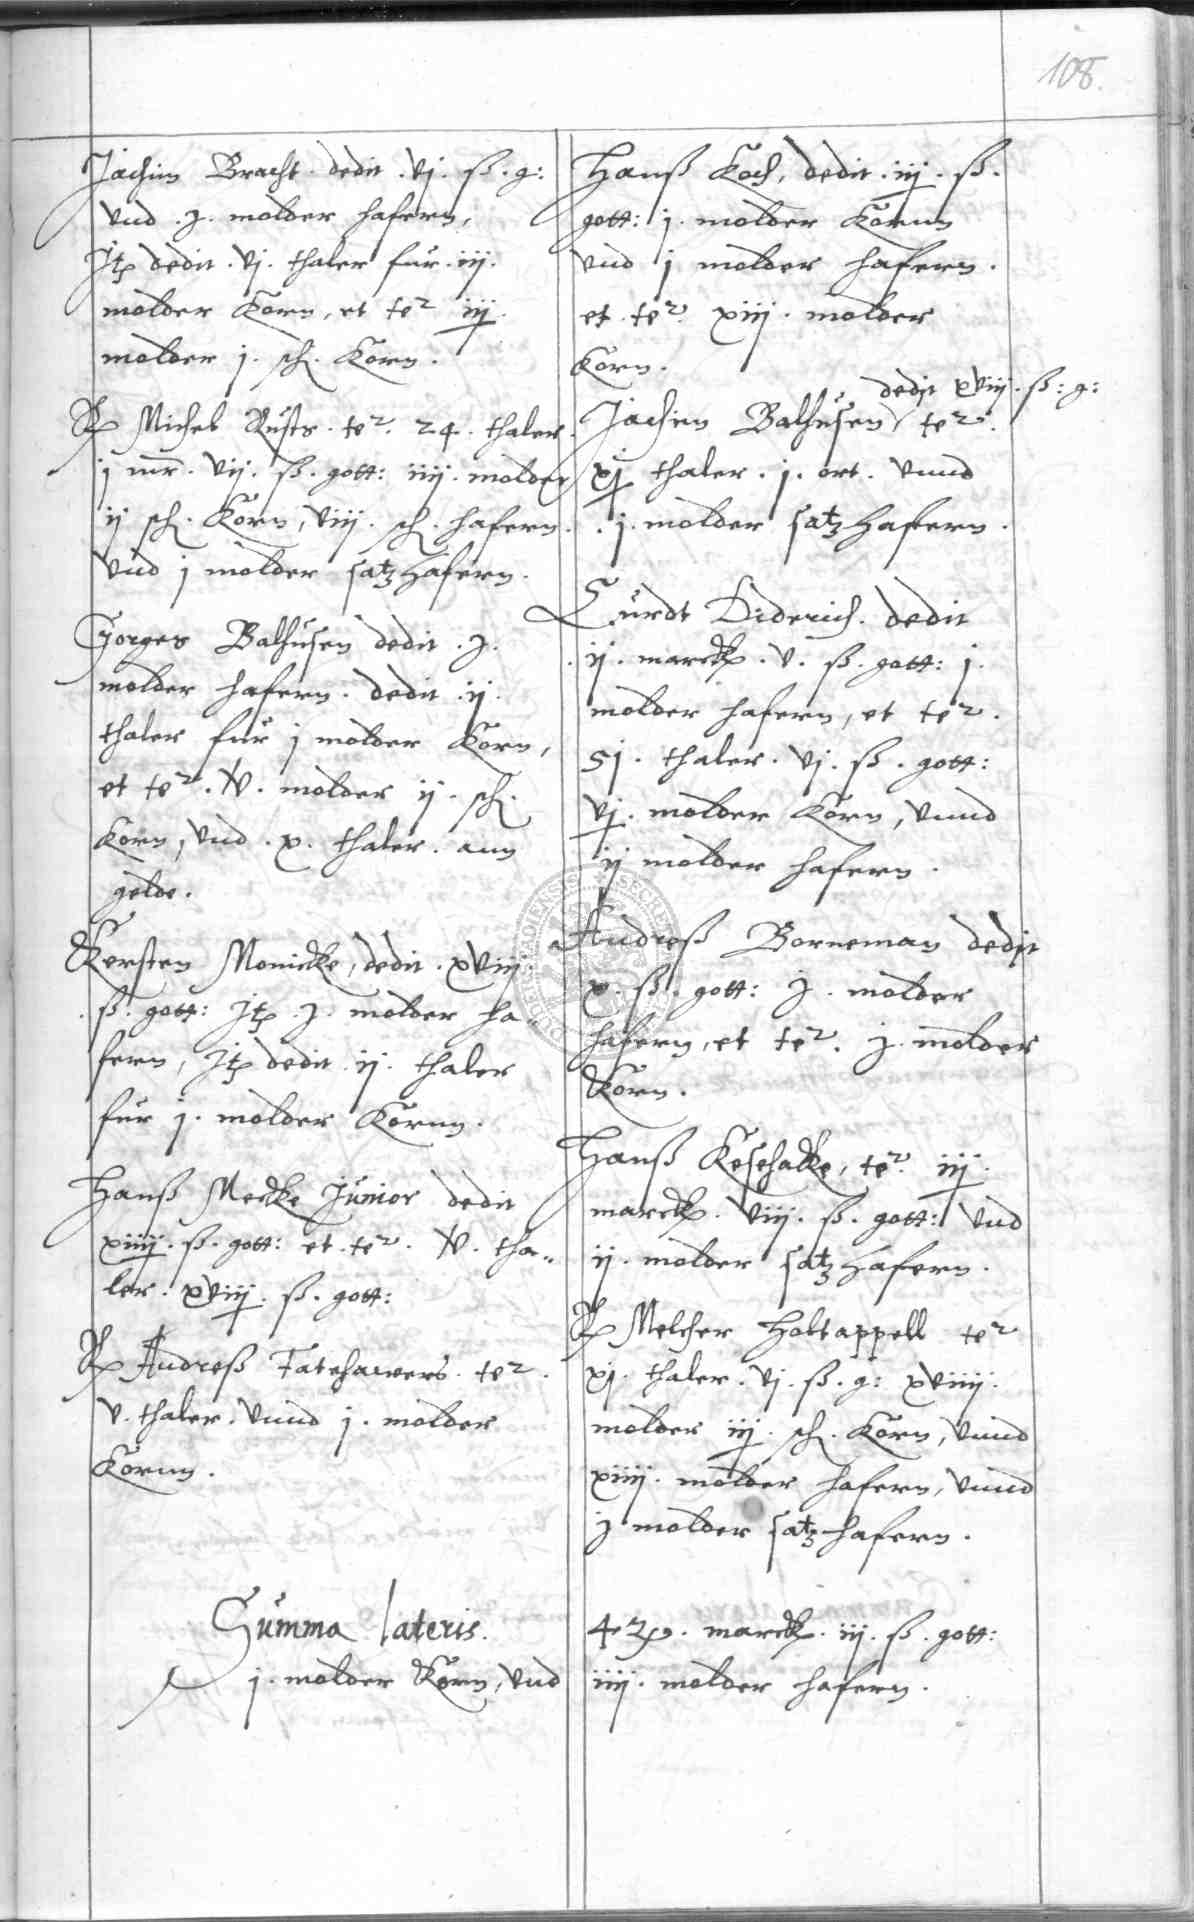 108.
Jachim Bracht dedit . vj . ß . g:
vnd . j . molder hafern,
Jtp dedit . vj . thaler für . iij .
molder Korn, et te² iij
molder j . sch . Korn .
Michel Rusts . te² . 24 . thaler .
j mr . vij . ß . gott: iiij . molder
ij sch . Korn, viij . sch . hafern .
vnd j molder satzhafern .
Gorges Balhusen dedit . j .
molder hafern . dedit . ij .
thaler für j molder Korn,
et te² . molder ij . sch .
Korn, vnd . x . thaler . ann
gelde .
Kersten Monicke, dedit . xviij .
ß . gott: Jtp . j . molder ha=
fern, Jtp dedit . ij . thaler
für j . molder Kornn .
Hanß Mecke Junior dedit
xiiij . ß . gott: et . te² . tha=
ler . xviij . ß . gott:
Andreß Fateschawers . te² .
v . thaler . vnnd j . molder
Kornn .
Hanß Koch, dedit . iij . ß .
gott: j . molder Kornn
vnd j molder hafern .
et . te² . xiij . molder
Korn .
dedit xviij . ß : g :
Jachim Balhusen te² .
xj thaler . j . ort . vnnd
. j . molder satzhafern .
Curdt Diderich . dedit
. ij . marck . v . ß . gott: j .
molder hafern, et te² .
51 . thaler . vj . ß . gott:
vj . molder Korn, vnnd
ij molder hafern .
Andreß Borneman dedit
x . ß . gott: j . molder
hafern, et te² . j . molder
Korn .
Hanß Kesehacke, te² . iij .
marck . viij . ß . gott: vnd
ij . molder satzhafern .
Melcher Holtappell te²
xj . thaler . vj . ß . g: xviiij .
molder iij . sch . Korn, vnnd
xiiij . molder hafern, vnnd
j molder satzhafern .
Summa lateris .
marck . iij . ß . gott:
j . molder Korn, vnd iiij . molder hafern .